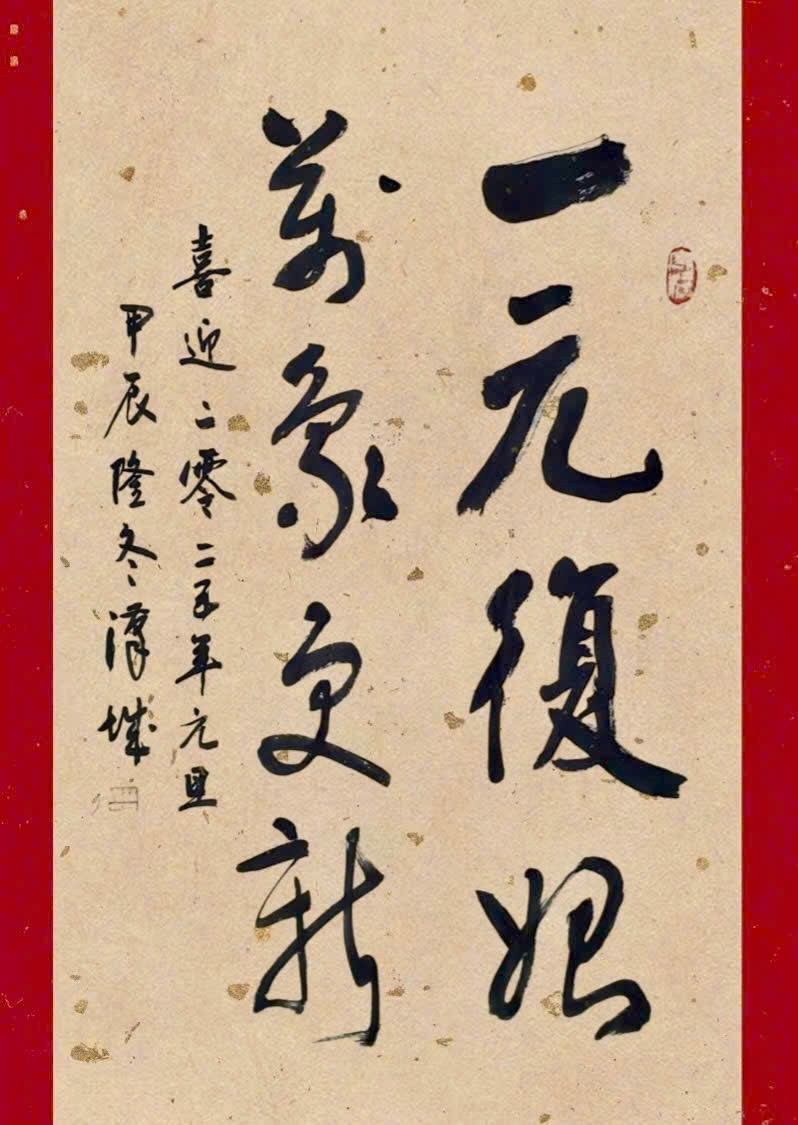 一元復始
萬象更新
喜迎二零二五年元旦
甲辰隆冬漢城